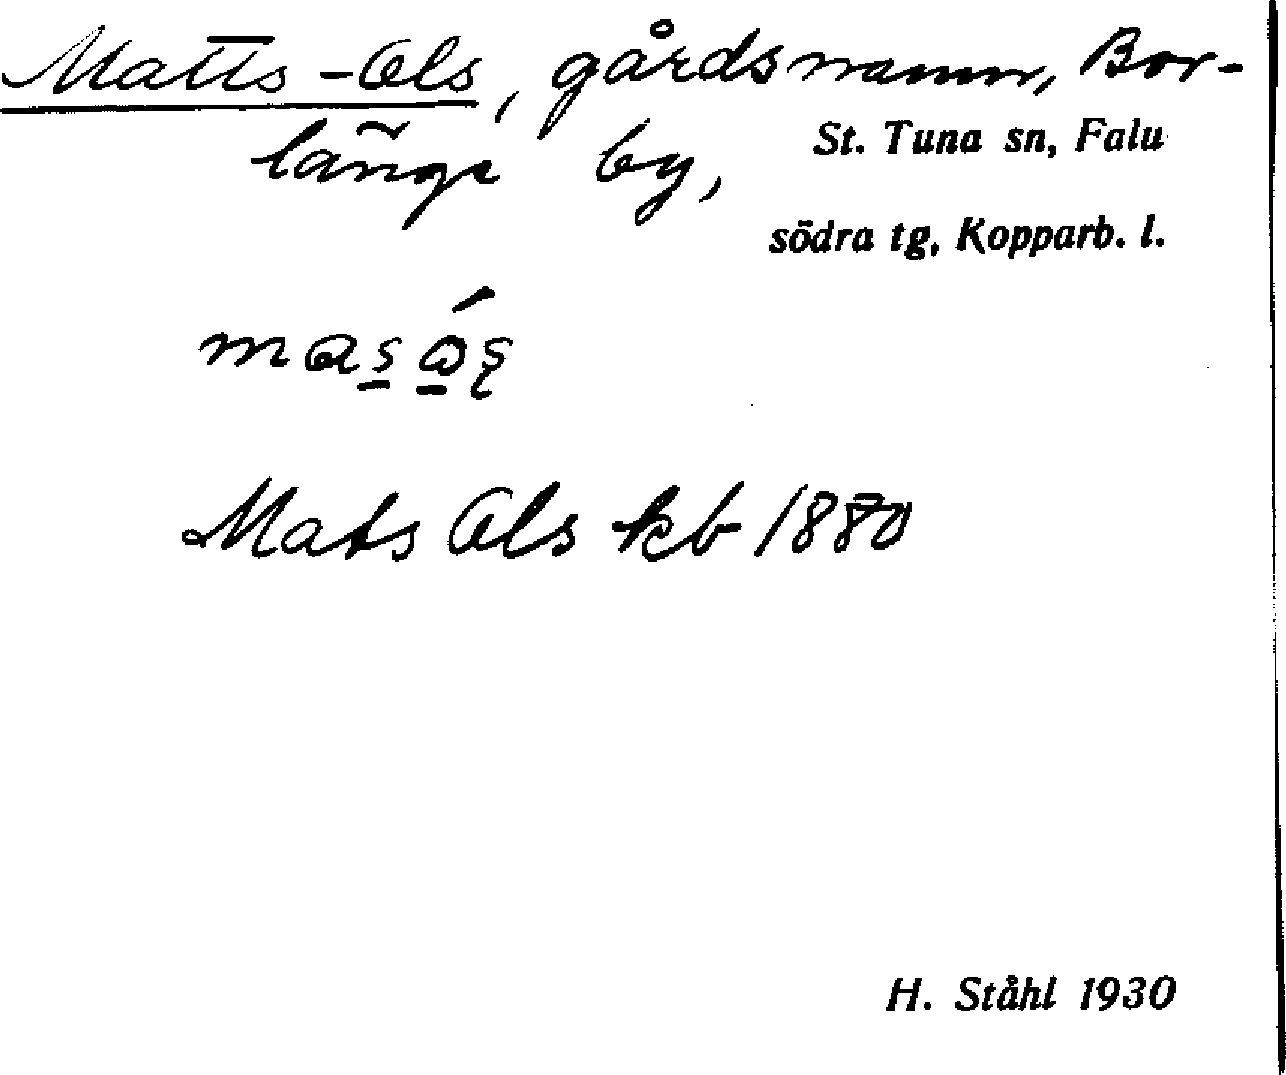 Matts-Ols, gårdsnamn, Bor-
länge by, St. Tuna sn, Falu
södra tg, Kopparb. l.
Mats Ols kb 1880
H. Ståhl 1930